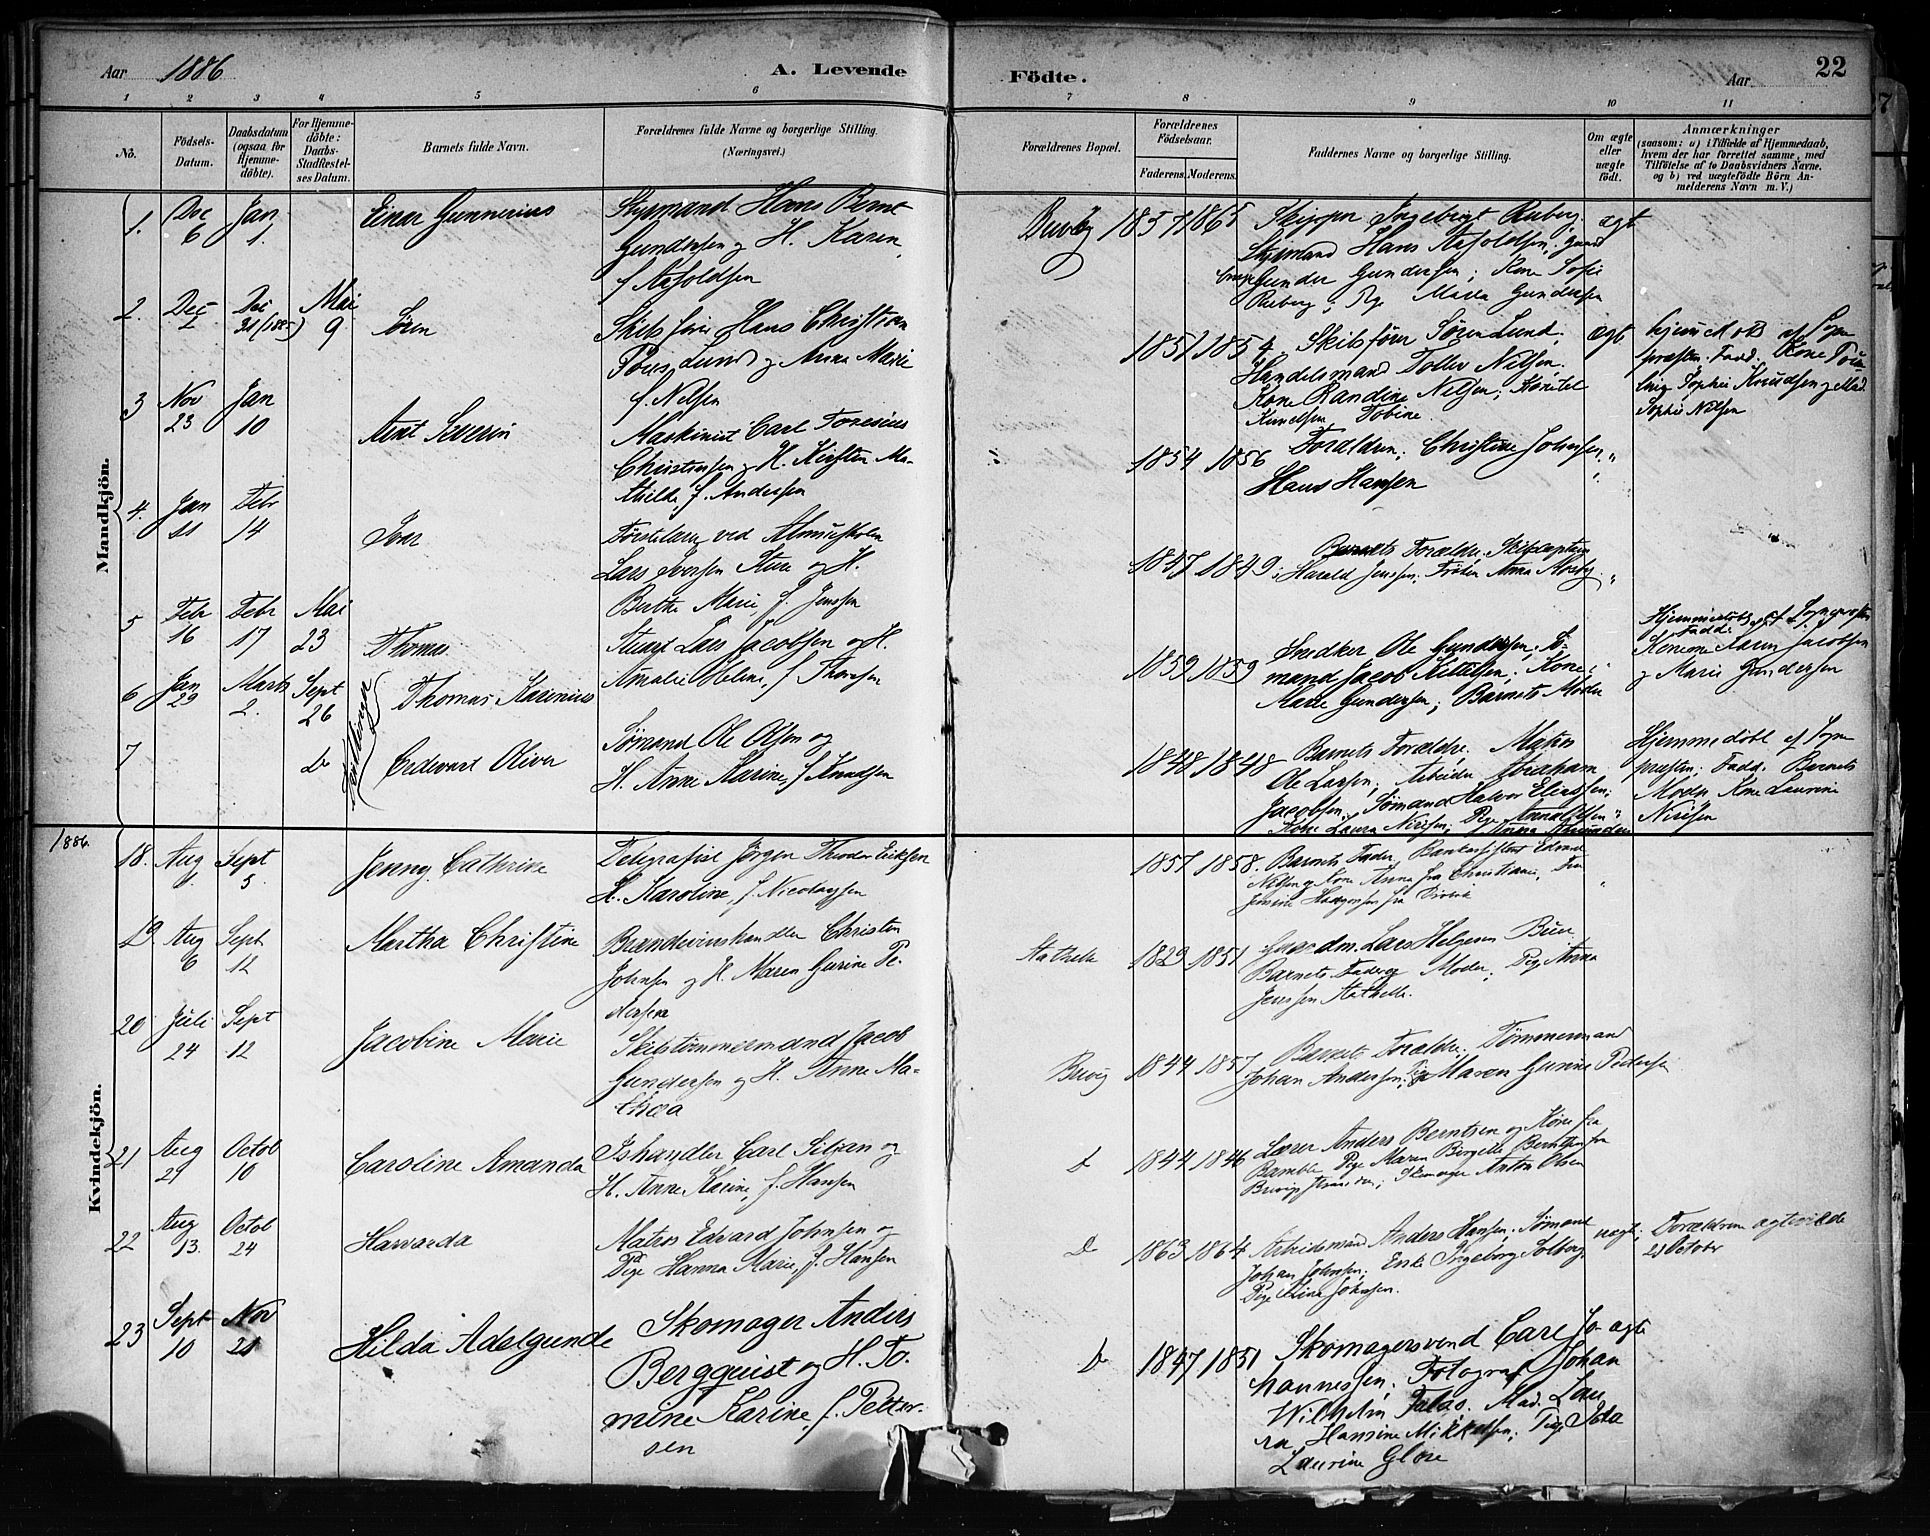 Aar 1886 A. Levende
Födte. Aar 22
1 2 3 4 5 6 7 8 9 10 11
No.
Födsels-
Datum.
Daabsdatum
(ogsaa for
Hjemme-
döbte).
For Hjemme-
döbte:
Daabs-
Stadfæstel-
ses Datum.
Barnets fulde Navn.
Forældrenes fulde Navne og borgerlige Stilling.
(Næringsvei.)
Forældrenes Bopæl.
Forældrenes
Födselsaar.
Faderens. Moderens.
Faddernes Navne og borgerlige Stilling.
Om ægte
eller
uægte
født.
Anmærkninger
(saasom: a) i Tilfælde af Hjemmedaab,
hvem der har forrettet samme, med
Tilföielse af to Daabsvidners Navne.
og b) ved uægtefödte Börn An-
melderens Navn m. V.)
Mandkjön.
1. Dec 6 Jan 1. Einar Gunnerius
Styrmand Hans Bernt
Gundersen og H. Karen,
f. Aasoldsen
Brevig 1857 1865
Skipper Ingebrigt Ruberg.
Styrmand Hans Aasoldsen;
Gunder Gundersen; Kone Sofie
Ruberg; Pge Maria Gundersen
ægt
2. Dec 1 Dec 31 (1885) Mai 9 Sören
Skibsfører Hans Christian
Lund og Anna Marie
f. Nilsen
1851 1854
Skibsfører Søren Lund,
Handelsmand Tollev Nilsen.
Kone Randine Nilsen;
Knudsen Tobine
ægt.
hjem døbt af Sogne
præsten. Fadd. Kone
Sophie Knudsen og Mad.
Sophie Nilsen
3 Nov 23 Jan 10 Aent Severin
Maskinist Carl
Christensen og H. Kirsten Ma-
thilde, f. Andersen
1854 1856
Forældren; Christine Johnsen,
Hans Hansen
"
4. Jan 11 Febr 14 Ivar
Førstelærer ved Almueskolen
Lars Iversen Sture og H.
Berthe Marie, f. Jenssen
1847 1849
Barnets Forældre. Skibscaptein
Harald Jenssen. Frøken Anna Moeby
"
5 Febr 16 Febr 17 Mai 23 Thomas
Stuert Lars Jacobsen og H.
Amalie Helene, f. Thorsen
1859 1859
Snedker Ole Gundersen; Sø-
mand Jacob Kittilsen; Kone
Marie Gundersen; Barnets Moder
Hjemmedøbt af Sognepræsten
Fadd:
Konerne Karen Jacobsen
og Marie Gundersen
6 Jan 29 Marts 2. Sept 26 Thomas Karenius
7 do Cedevart Oliver
Tvillinger
Sømand Ole Olsen og
H. Anne Karine, f. Knudsen
1848 1848
Barnets Forældre. Matros
Ole Larsen; Arbeider Abraham
Jacobsen, Sømand Halvor Eliassen;
Kone Laura Nirisen; Pge
Hjemmedøbt af Sogne
præsten; Fadd. Barnets
Moder Kone Laurine
Nirisen
Kvindekjön.
1886.
18. Aug 1 Sept 5. Jenny Cathrine
Telegrafist Jørgen Theodor Eriksen
H. Karoline, f. Nicolaysen
1857 1858.
Barnets Fader, Edvard
Nilsen og Kone Anna fra Christiania,
"
19 Aug 6 Sept 12 Martha Christine
Brændevinshandler Christen
Johnsen og H. Maren Gurine Pe-
dersen
Stathelle 1829 1851
Gaardm. Lars Helgesen Bien
Barnets Fader og Moder; Pige Anna
Jenssen Stathelle.
20 Juli 24 Sept 12 Jacobine Marie
Skibstømmermand Jacob
Gundersen og H. Anne Ma-
thea
Brevig 1844 1857
Barnets Forældre; Tømmermand
Johan Andersen; Pige Maren Gurine Pedersen
21 Aug 21 Octob 10 Caroline Amanda
Ishandler Carl Siljan og
H. Anne Karine, f. Hansen
d 1844 1846
Lærer Anders Berntsen og Kone fra
Bamble, Pige Maren Birgitte Berntsen fra
Brevigs stranden; Skomager Anton Olsen
22 Aug 13. Octob 24 Harvarda
Matros Edvard Johnsen og
Pige Hanna Marie, f. Hansen
D 1863 1864
Arbeidsmand Anders Hansen. Sømand
Johan Johnsen; Enke Ingeborg Solberg
Pige Stina Johnsen.
uægt;
Forældrene ægteviede
21 October
23 Sept 10 Nov 21 Hilda Adelgunde
Skomager Anders
Bergquist og H. To-
mine Karine, f. Petter-
sen
D 1847 1851
Skomagersvend Carl Jo-
hannessen; Fotograf Johan
Wilhelm Falas. Mad. Lau
ra, Hansine Mikkelsen; Pige Ida
Laurine Glose
ægte